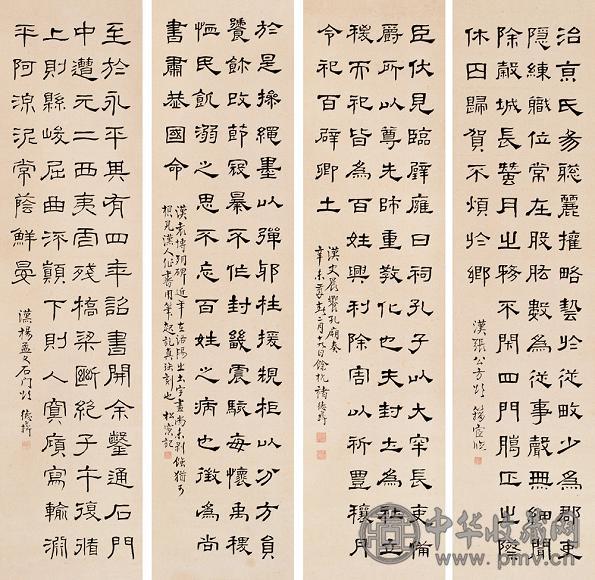 治京氏易聰麗權略藝於從畋少為郡吏
隱練職位常在股肱數為從事聲無細聞
除穀城長蠶月之務不閉四門臘正之際
休囚歸賀不煩於鄉
漢張公方頌
臣伏見臨辟雍日祠孔子以大宰長吏備
爵所以尊先師重教化也夫封土為社立
稷而祀皆為百姓興利除害以祈豐穰月
令祀百辟卿士
漢史晨饗孔廟奏
辛未二月十九日餘杭褚德彝
於是操繩墨以彈邪枉援規柜以分方員
饕飻改節寇暴不作封畿震駭每懷禹稷
恤民飢溺之思不忘百姓之病也徵為尚
書肅恭國命
漢袁博殘碑近年在洛陽出土字畫尚未剝蝕猶可
想見漢人作書用筆起訖真法刻也 松窗記
至於永平其有四年詔書開余鑿通石門
中遭元二西夷虐殘橋梁斷絕子午復循
上則縣峻屈曲流顛下則人寞庼寫輸淵
平阿湶泥常蔭鮮晏
漢楊孟文石門頌 德彝
中华收藏网
www.pmv.cn